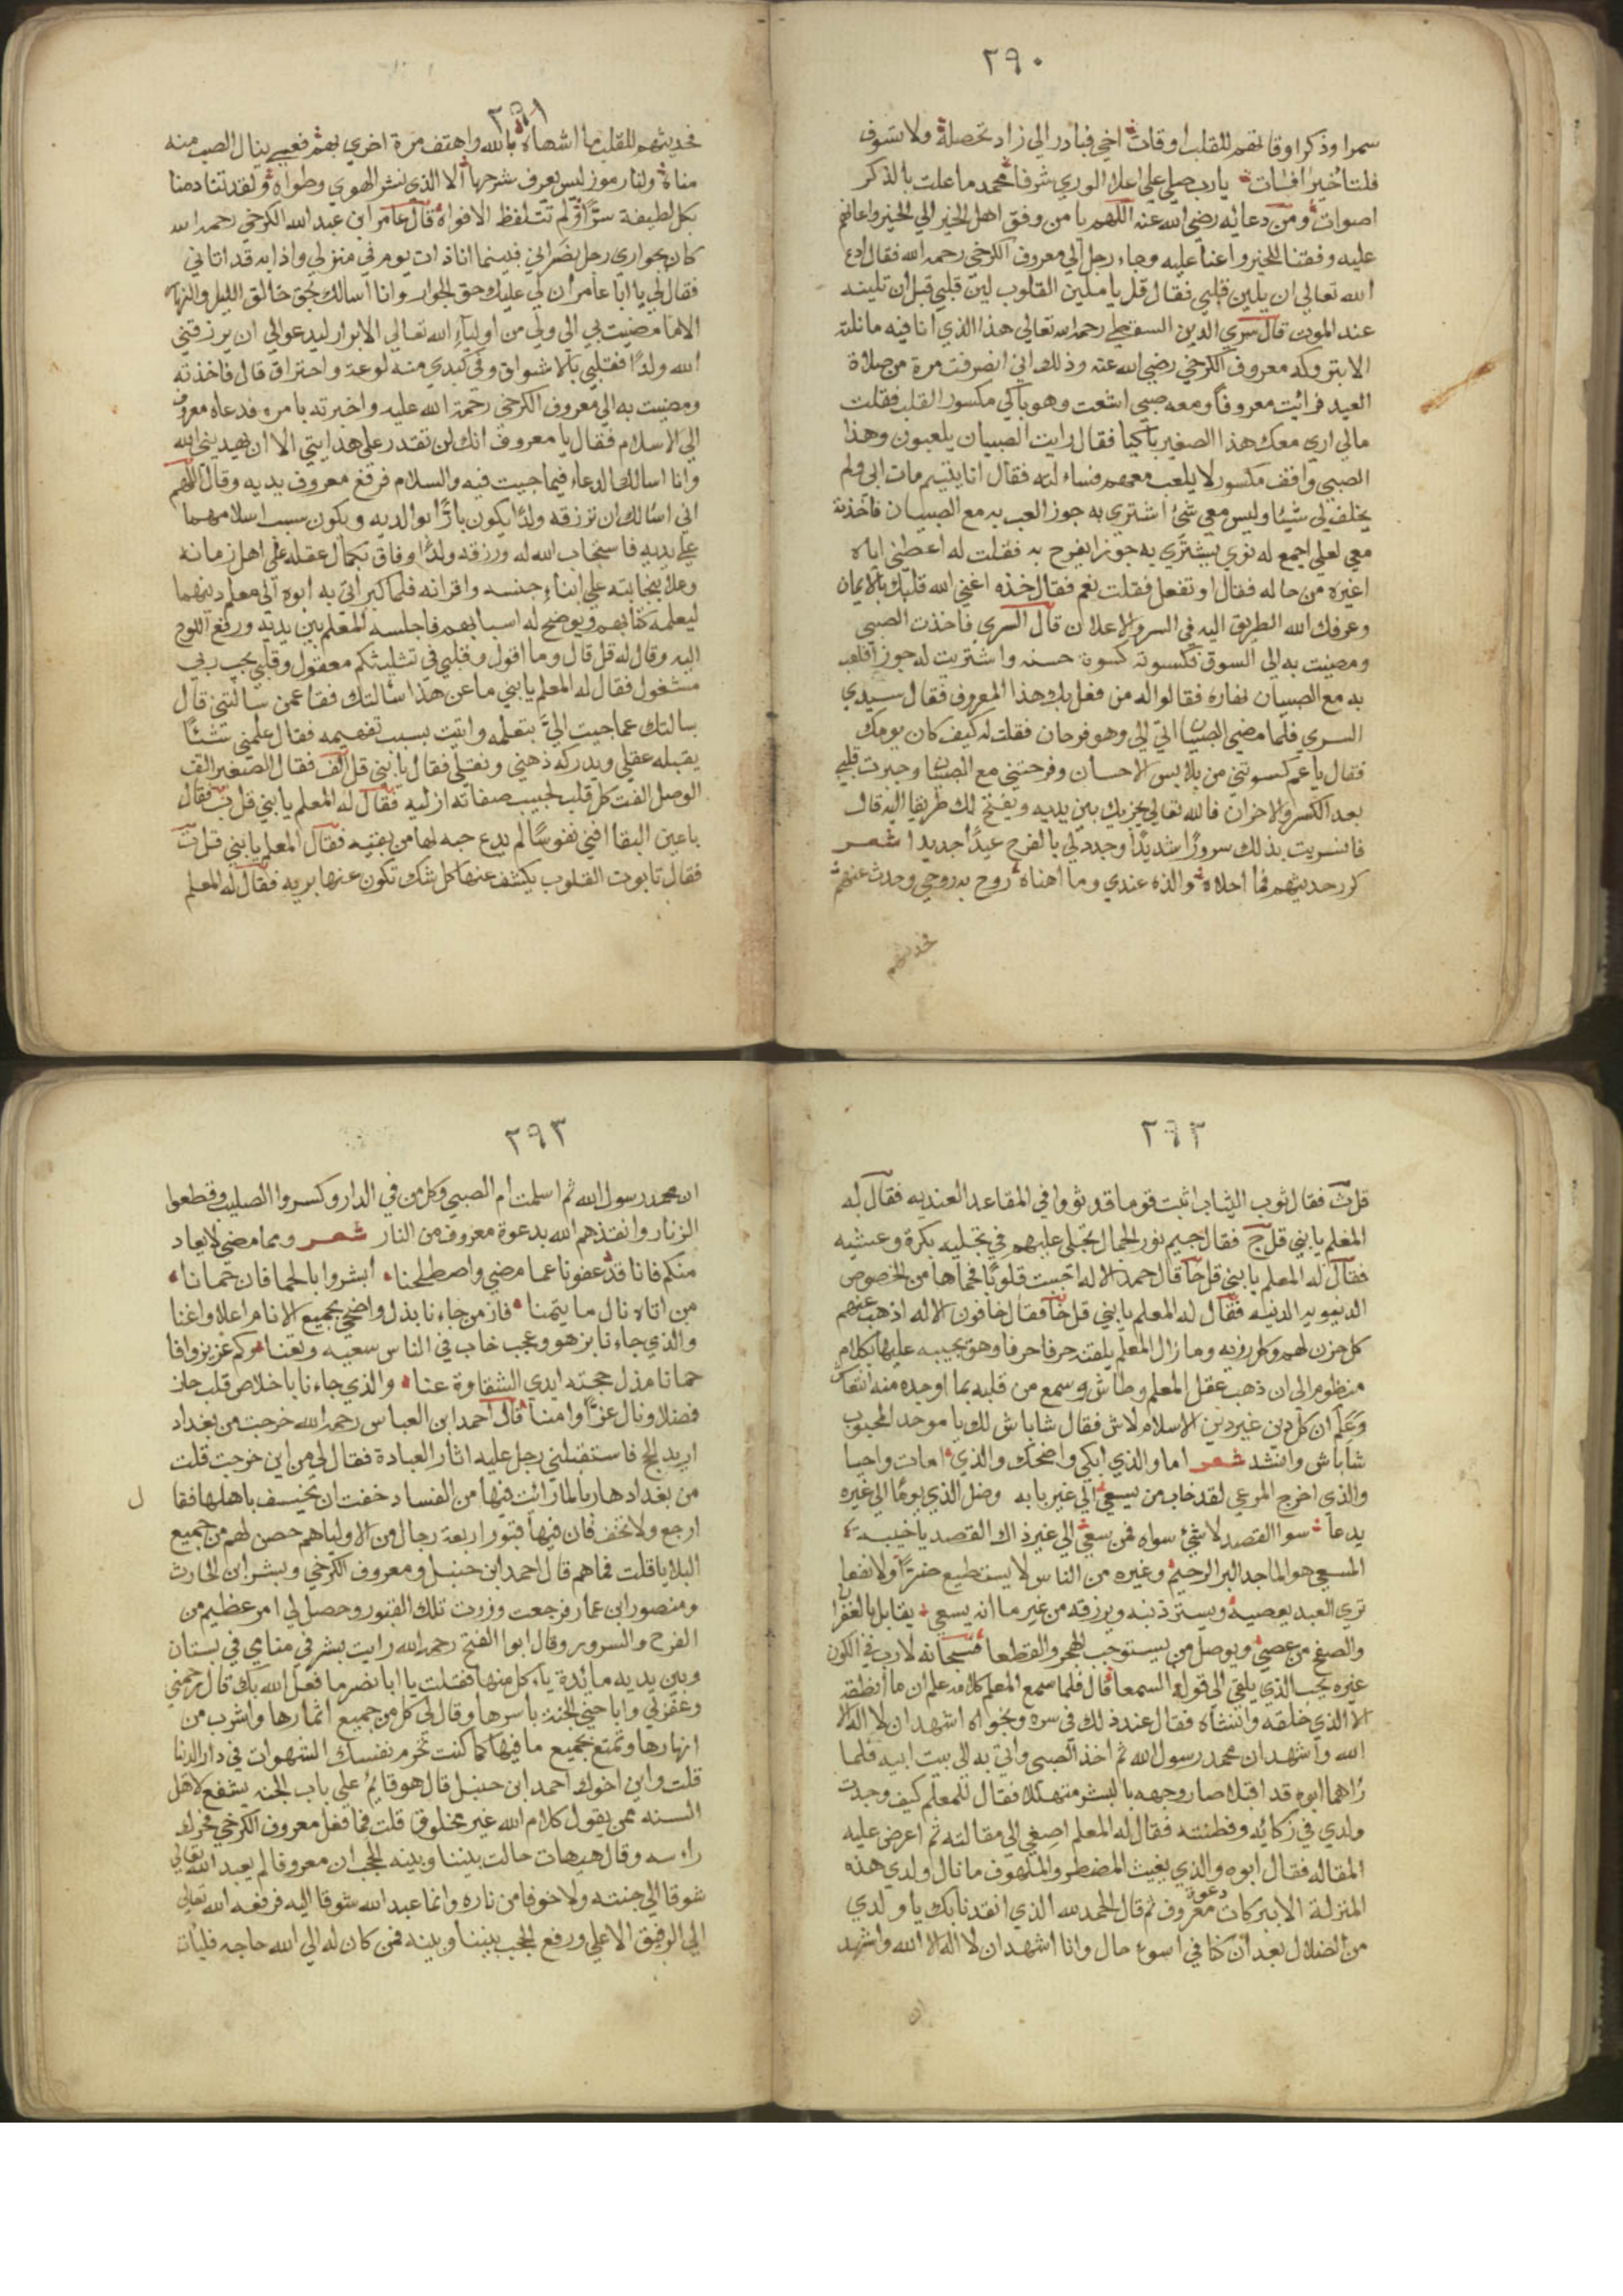 ٢٩٠
سمرا وذكر اوقاتهم للقلب اوقات اخي فبادر الي زاد تحصله ولا تسوف
فلتاخير افات يارب صلي علي اعلا الوري شرفا محمد ما علت بالذكر
اصوات ومن دعائه رضي الله عنه اللهم يا من وفق اهل الخير الي الخير واعانهم
عليه وفقنا للخير واعنا عليه وجاء رجل الي معروف الكرخي رحمه الله فقال ادع
الله تعالي ان يلين قلبي فقال قل يا ملين القلوب لين قلبي قبل ان تلينه
عند الموت قال سري الدين السقطي رحمه الله تعالي هذا الذي انا فيه ما نلته
الا ببركه معروف الكرخي رضي الله عنه وذلك اني انصرفت مرة من صلاة
العيد فرائت معروفا ومعه صبي اشعث وهو باكي مكسور القلب فقلت
مالي اري معك هذا الصغير باكيا فقال رايت الصبيان يلعبون وهذا
الصبي واقف مكسور لا يلعب معهم فساءلته فقال انا يتيم مات ابي ولم
يخلف لي شيئا وليس معي شئ اشتري به جوز العب به مع الصبيان فاخذته
معي لعلي اجمع له نوي يشتري به جوزا يفرح به فقلت له اعطني اياه
اغيره من حاله فقال او تفعل فقلت نعم فقال خذه اغني الله قلبك بالايمان
وعرفك الله الطريق اليه في السر والاعلان قال السري فاخذت الصبي
ومضيت به الي السوق فكسوته كسوة حسنه واشتريت له جوزا فلعب
به مع الصبيان نهاره فقالوا له من فعل بك هذا المعروف فقال سيدي
السري فلما مضي الصبيان اتي الي وهو فرحان فقلت له كيف كان يومك
فقال يا عم كسوتني من بلابس الاحسان وفرحتني مع الصبيان وجبرت قلبي
بعد الكسر والاحزان فالله تعالي يجزيك بين يديه ويفتح لك طريقا اليه قال
فانسريت بذلك سرورا شديدا وجدد لي بالفرح عيدا جديدا شعر
كرر حديثهم فما احلاه والذه عندي وما اهناه روح به روحي وحدث عنهم
فحديثهم
٢٩١
فحديثهم للقلب ما اشهاه بالله واهتف مرة اخري بهم فعسي ينال الصب منه
مناه ولنا رموز ليس يعرف شرحها الا الذي نشر الهوي وطواه ولقد تنادمنا
بكل لطيفة سرا ولم تتلفظ الافواه قال عامر ابن عبد الله الكرخي رحمه الله
كان بجواري رجل نصراني فبينما انا ذات يوم في منزلي واذا به قد اتاني
فقال لي يا ابا عامر ان لي عليك وحق الجوار وانا اسالك بحق خالق الليل والنهار
الا ما مضيت بي الي ولي من اولياء الله تعالي الابرار ليدعوا لي ان يرزقني
الله ولدا فقلبي بالاشواق وفي كبدي منه لوعة واحتراق قال فاخذته
ومضيت به الي معروف الكرخي رحمة الله عليه واخبرته بامره فدعاه معروف
الي الاسلام فقال يا معروف انك لن تقدر علي هدايتي الا ان يهديني الله
وانا اسالك الدعاء فيما جيت فيه والسلام فرفع معروف يديه وقال اللهم
اني اسالك ان ترزقه ولدا يكون بارا بوالديه ويكون سبب اسلامهما
علي يديه فاستجاب الله له ورزقه ولدا وفاق بكمال عقله علي اهل زمانه
وعلا بنجابته علي ابناء جنسه واقرانه فلما كبر اتي به ابوه الي معلم دينهما
ليعلمه كتابهم ويوضح له اسبابهم فاجلسه المعلم بين يديه ورفع اللوح
اليه وقال له قل قال وما اقول وقلبي في تثليثكم معقول وقلبي بحب ربي
مشغول فقال له المعلم يا بني ما عن هذا سالتك فقا عمن سالتني قال
سالتك عما جيت الي بتعلمه واتيت بسبب تفهيمه فقال علمني شئا
يقبله عقلي ويدركه ذهني ونقلي فقال يا بني قل الف فقال الصغير الف
الوصل الفت كل قلب لحبيب صفاته ازليه فقال له المعلم يا بني قل ب فقال
با عين البقا افني نفوسا لم يدع حبه لها من بقيه فقال المعلم يا بني قل ت
فقال تا بوت القلوب يكشف عنها كل شك تكون عنها بريه فقال له المعلم
٢٩٢
قل ث فقال ثوب الثياب اثبت قوما قد ثووا في المقاعد العنديه فقال له
المعلم يا بني قل ج فقال جيم نور الجمال تجلي عليهم في تجليه بكرة وعشيه
فقال له المعلم يا بني قل حا قال حمد الاله احيت قلوبا فحماها من الخصوص
الدنيويه الدنيه فقال له المعلم يا بني قل خا فقال خافون الاله اذهب عنهم
كل حزن لهم وكل رزيه وما زال المعلم يلقنه حرفا حرفا وهو يجيبه عليها بكلام
منظوم الي ان ذهب عقل المعلم وطاش وسمع من قلبه بما اوجده منه انتعاش
وعلم ان كل دين غير دين الاسلام لاش فقال شاباش لك يا موحد المحبوب
شاباش وانشد شعر اما والذي ابكي واضحك والذي امات واحيا
والذي اخرج المرعي لقد خاب من يسعي الي غير بابه وضل الذي يوما الي غيره
يدعا سوا القصد لا شئ سواه فمن سعي الي غير ذاك القصد يا خيبة
المسعي هو الماجد البر الرحيم وغيره من الناس لا يستطيع ضرا ولا نفعا
تري العبد يعصيه ويستر ذنبه ويرزقه من غير ما انه يسعي يقابل بالغفران
والصفح من عصي ويوصل من يستوجب الهجر والقطعا فسبحانه لا رب في الكون
غيره يحب الذي يلقي الي قوله السمعا قال فلما سمع المعلم كلامه علم ان ما انطقه
الا الذي خلقه وانشاه فقال عند ذلك في سره ونجواه اشهد ان لا اله الا
الله واشهد ان محمد رسول الله ثم اخذ الصبي واتي به الي بيت ابيه فلما
راهما ابوه قد اقبلا صار وجهه بالبشر متهللا فقال للمعلم كيف وجدت
ولدي في زكائه وفطنته فقال له المعلم اصغي الي مقالته ثم اعرض عليه
المقاله فقال ابوه والذي يغيث المضطر والملهوف ما نال ولدي هذه
المنزلة الا ببركات دعوة معروف ثم قال الحمد لله الذي انقذنا بك يا ولدي
من الضلال بعد ان كنا في اسوء حال وانا اشهد ان لا اله الا الله واشهد
ان
٢٩٣
ان محمد رسول الله ثم اسلمت ام الصبي وكل من في الدار وكسروا الصليب وقطعوا
الزنار وانقذهم الله بدعوة معروف من النار شعر ومما مضي لا يعاد
منكم فانا قد عفونا عما مضي واصطلحنا ابشروا بالحما فان حمانا
من اتاه نال ما يتمنا فاز من جاءنا بذل واضحي بجميع الانام اعلا واغنا
والذي جاءنا بزهو وعجب خاب في الناس سعيه وتعنا كم عزيز وافا
حمانا مذل حجته ايدي الشقاوة عنا والذي جاءنا باخلاص قلب حاز
فضلا ونال عزا وامنا قال احمد ابن العباس رحمه الله خرجت من بغداد
اريد الحج فاستقبلني رجل عليه اثار العبادة فقال لي من اين خرجت قلت
من بغداد هاربا لما رائت فيها من الفساد خفت ان يخسف باهلها فقا ل
ارجع ولا تخف فان فيها قبور اربعة رجال من الاوليا هم حصن لهم من جميع
البلايا قلت فما هم قال احمد ابن حنبل ومعروف الكرخي وبشر ابن الحارث
ومنصور ابن عمار فرجعت وزرت تلك القبور وحصل لي امر عظيم من
الفرح والسرور وقال ابوا الفتح رحمه الله رايت بشر في منامي في بستان
وبين يديه مائدة ياءكل منها فقلت يا ابا نصر ما فعل الله بك قال رحمني
وغفر لي واباحني الجنة باسرها وقال لي كل من جميع اثمارها واشرب من
انهارها وتمتع بجميع ما فيها كما كنت تحرم نفسك الشهوات في دار الدنيا
قلت واين اخوك احمد ابن حنبل قال هو قايم علي باب الجنه يشفع لاهل
السنه ممن يقول كلام الله غير مخلوق قلت فما فعل معروف الكرخي فحرك
راءسه وقال هيهات حالت بيننا وبينه الحجب ان معروفا لم يعبد الله تعالي
شوقا الي جنته ولا خوفا من ناره وانما عبد الله شوقا اليه فرفعه الله تعالي
الي الرفيق الاعلي ورفع الحجب بيننا وبينه فمن كان له الي الله حاجه فليأت